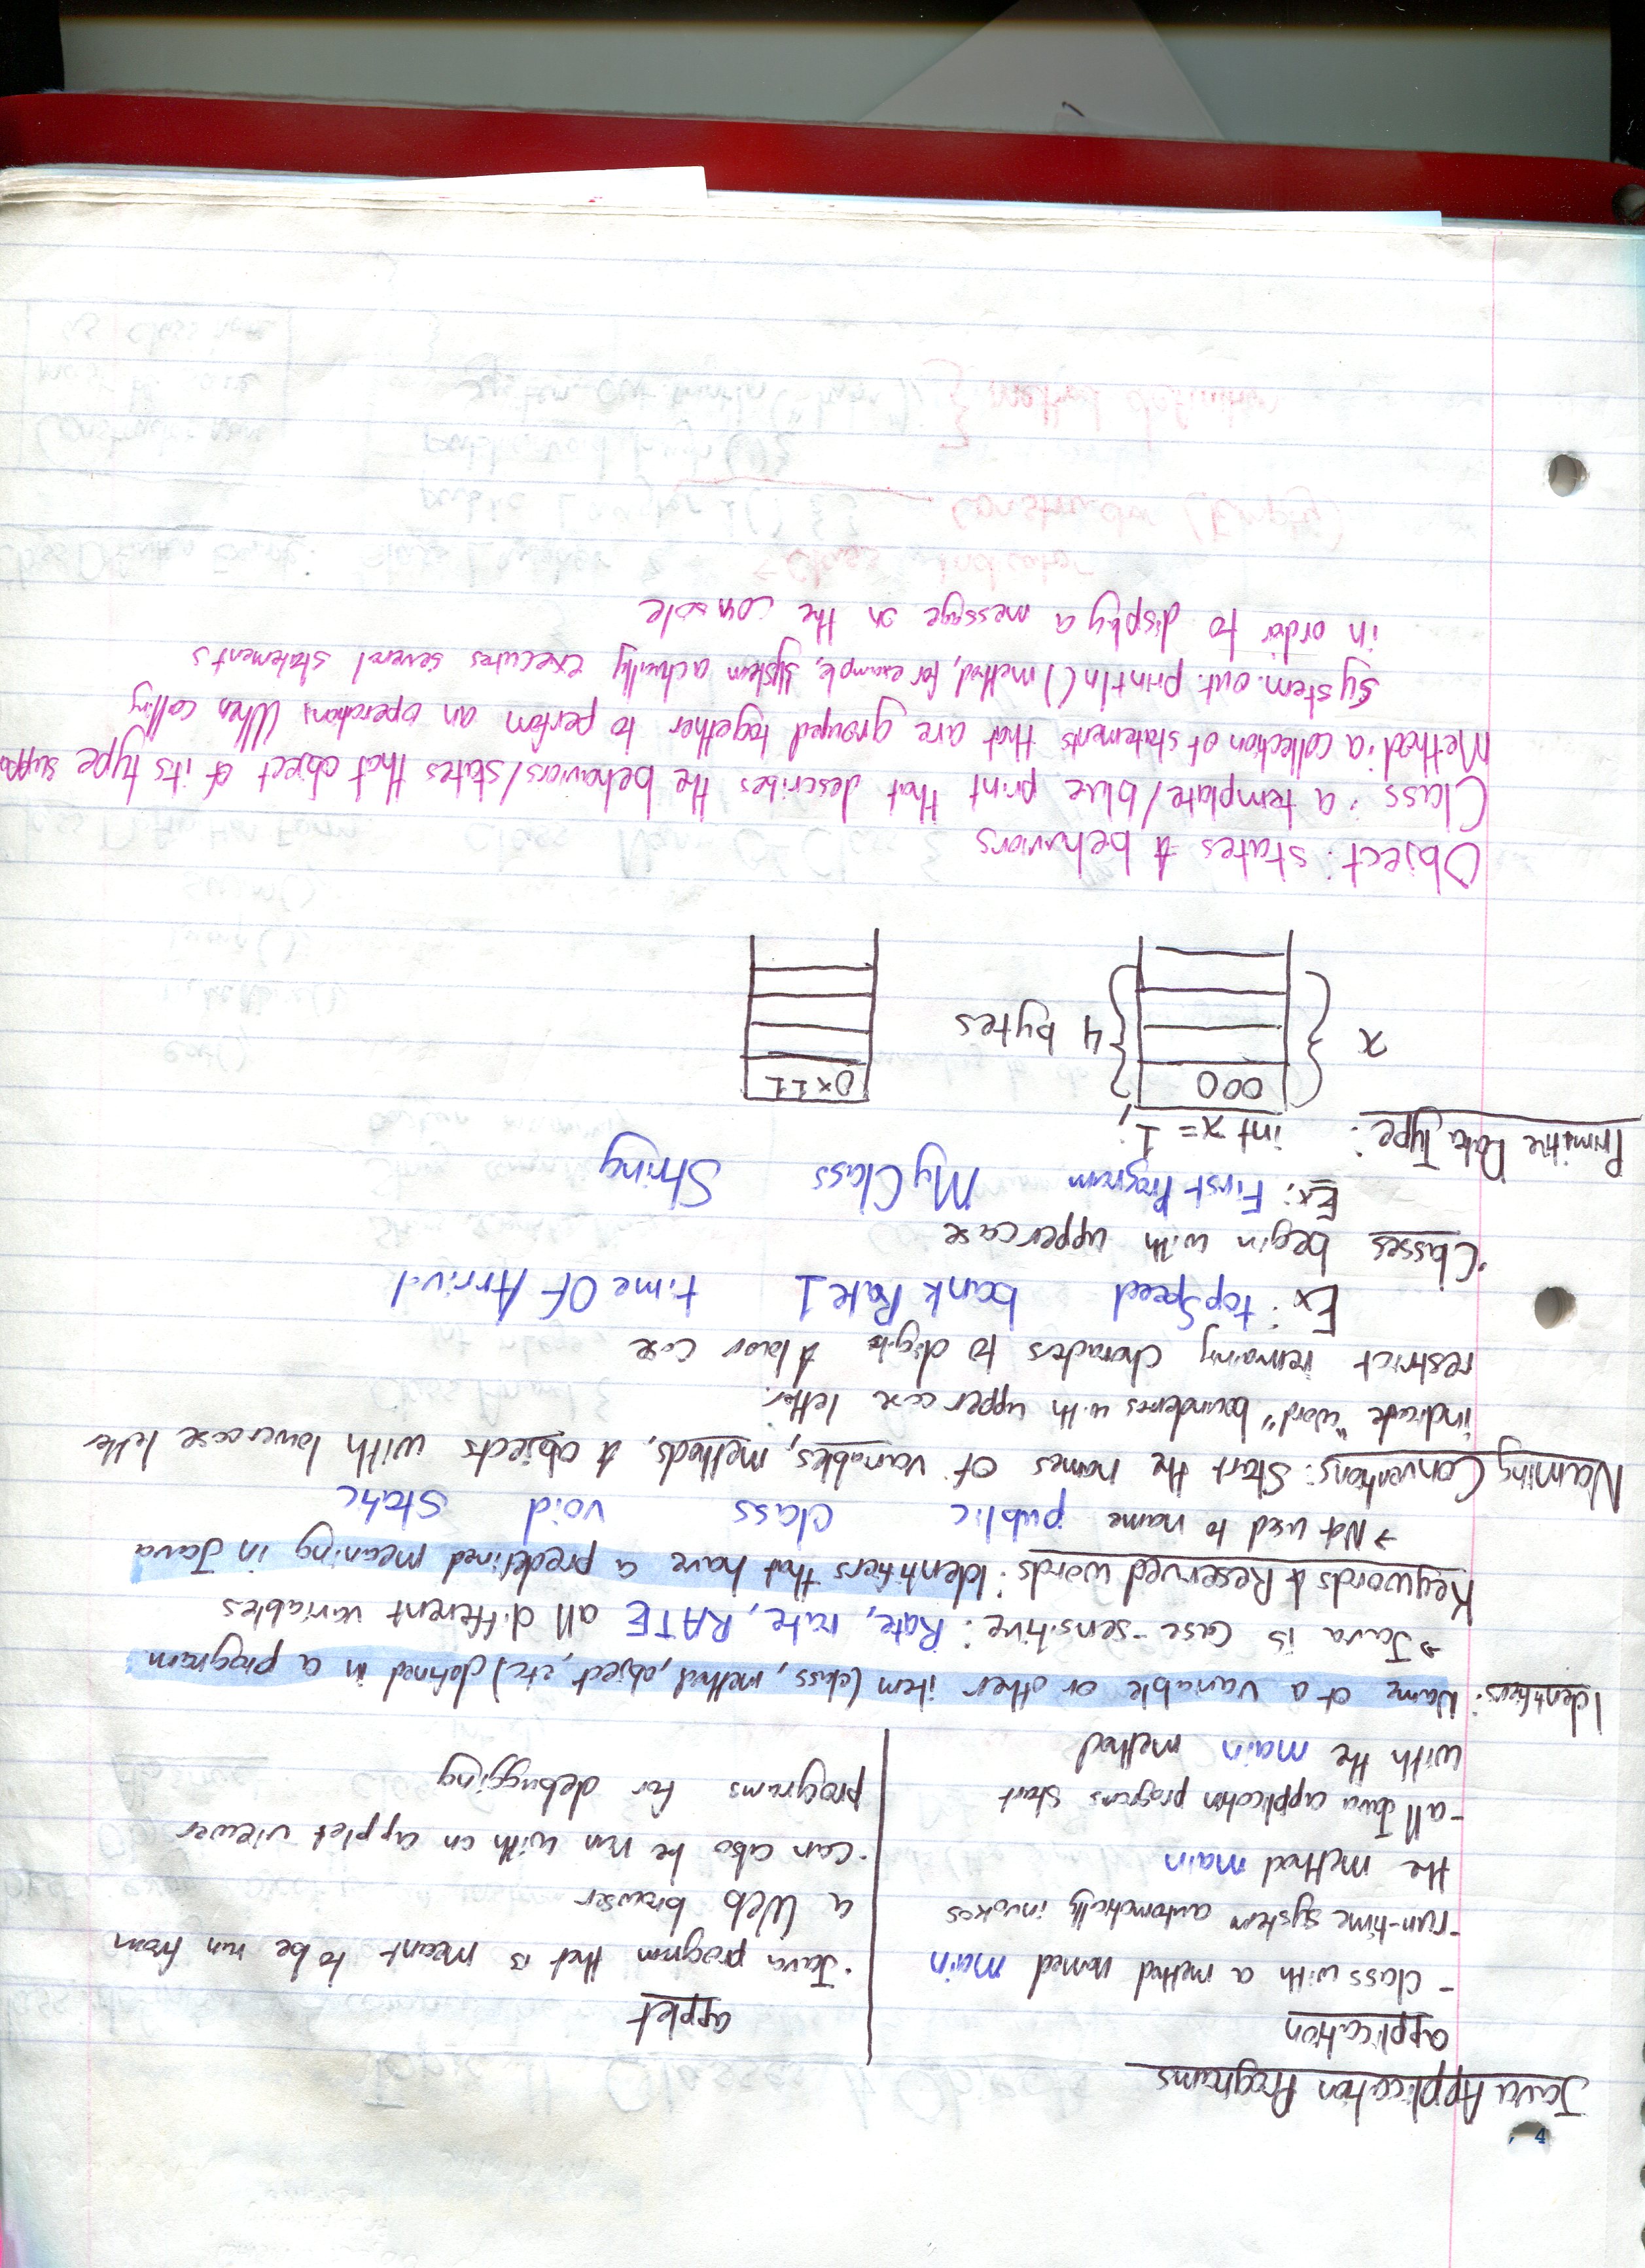 Java Application Programs
application
- class with a method named main
- run-time system automatically invokes
the method main
- all Java application programs start
with the main method
applet
· Java program that is meant to be run from
a Web browser
· can also be run with an applet viewer
programs for debugging
Identifiers: Name of a variable or other item (class, method, object, etc) defined in a program
→ Java is case-sensitive: Rate, rate, RATE all different variables
Keywords & Reserved words: Identifiers that have a predefined meaning in Java
→ Not used to name public class void static
Naming Conventions: Start the names of variables, methods, & objects with lowercase letter
indicate "word" bounderies with uppercase letter.
restrict remaining characters to digits & lower case
Ex: topSpeed bankRate1 timeOfArrival
· Classes begin with uppercase
Ex: FirstProgram MyClass String
Primitive Data Type: int x = 1;
x
000
4 bytes
0x11
Object: states & behaviors
Class: a template/blue print that describes the behaviors/states that object of its type suppo
Method: a collection of statements that are grouped together to perform an operation. When calling
System.out.println() method, for example, system actually executes several statements
in order to display a message on the console